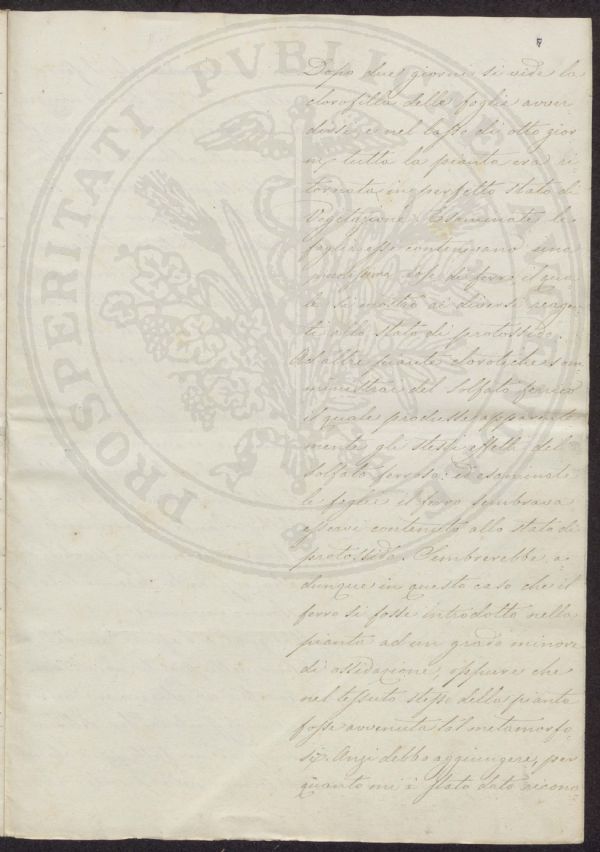 PROSPERITATI PVBLICAE
Dopo due giorni si vide la
clorofilla delle foglie avver
dirsi, e nel lasso di otto gior
ni tutta la pianta era ri
tornata in perfetto stato di
Vegetazione. Esaminate le
foglie esse contenevano una
dose di ferro, il qua
le si mostrò ai diversi reagen
ti allo stato di protossido.
Ad altre piante clorotiche som
ministrai del solfato ferrico
il quale produsse apparente
mente gli stessi effetti del
solfato ferroso: ed esaminate
le foglie il ferro sembrava
esservi contenuto allo stato di
protossido. Sembrerebbe a
dunque in questo caso che il
ferro si fosse introdotto nella
pianta ad un grado minore
di ossidazione, oppure che
nel tessuto stesso della pianta
fosse avvenuta tal metamorfo
si. Anzi debbo aggiungere, per
quanto mi è stato dato ricono